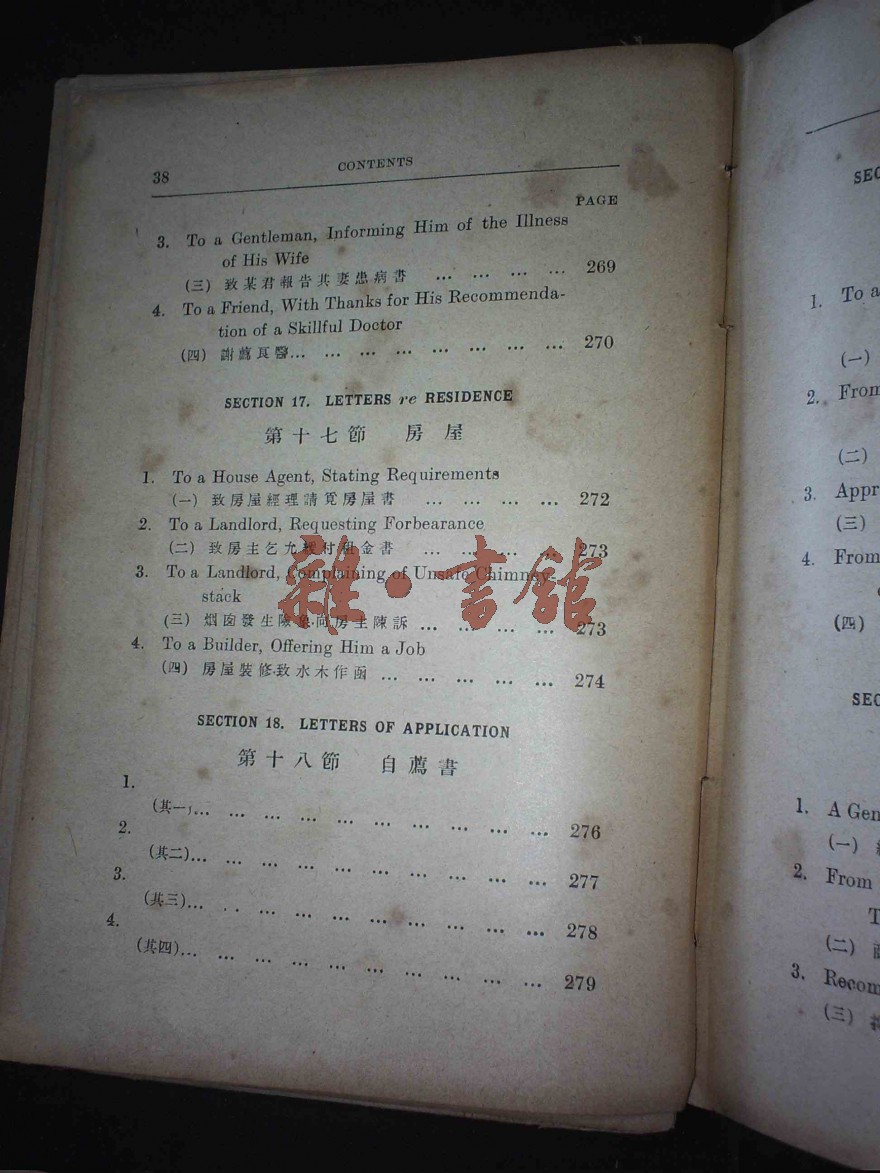 38
CONTENTS
PAGE
3. To a Gentleman, Informing Him of the Illness
of His Wife
(三) 致某君報告其妻患病書 ... ... ... ... 269
4. To a Friend, With Thanks for His Recommenda-
tion of a Skillful Doctor
(四) 謝薦良醫... ... ... ... ... ... ... ... 270
SECTION 17. LETTERS re RESIDENCE
第十七節 房屋
1. To a House Agent, Stating Requirements
(一) 致房屋經理請覓房屋書 ... ... ... ... 272
2. To a Landlord, Requesting Forbearance
(二) 致房主乞允緩付租金書 ... ... ... ... 273
3. To a Landlord, Complaining of Unsafe Chimney-
stack
(三) 烟囱發生險象向房主陳訴 ... ... ... ... 273
4. To a Builder, Offering Him a Job
(四) 房屋裝修致水木作函 ... ... ... ... ... 274
雜·書館
SECTION 18. LETTERS OF APPLICATION
第十八節 自薦書
1.
(其一)... ... ... ... ... ... ... ... ... ... 276
2.
(其二)... ... ... ... ... ... ... ... ... ... 277
3.
(其三)... ... ... ... ... ... ... ... ... ... 278
4.
(其四)... ... ... ... ... ... ... ... ... ... 279
1. To a
(一)
2. From
(二)
3. Appr
(三)
4. From
(四)
SEC
1. A Gen
(一)
2. From
T
(二)
3. Recom
(三)